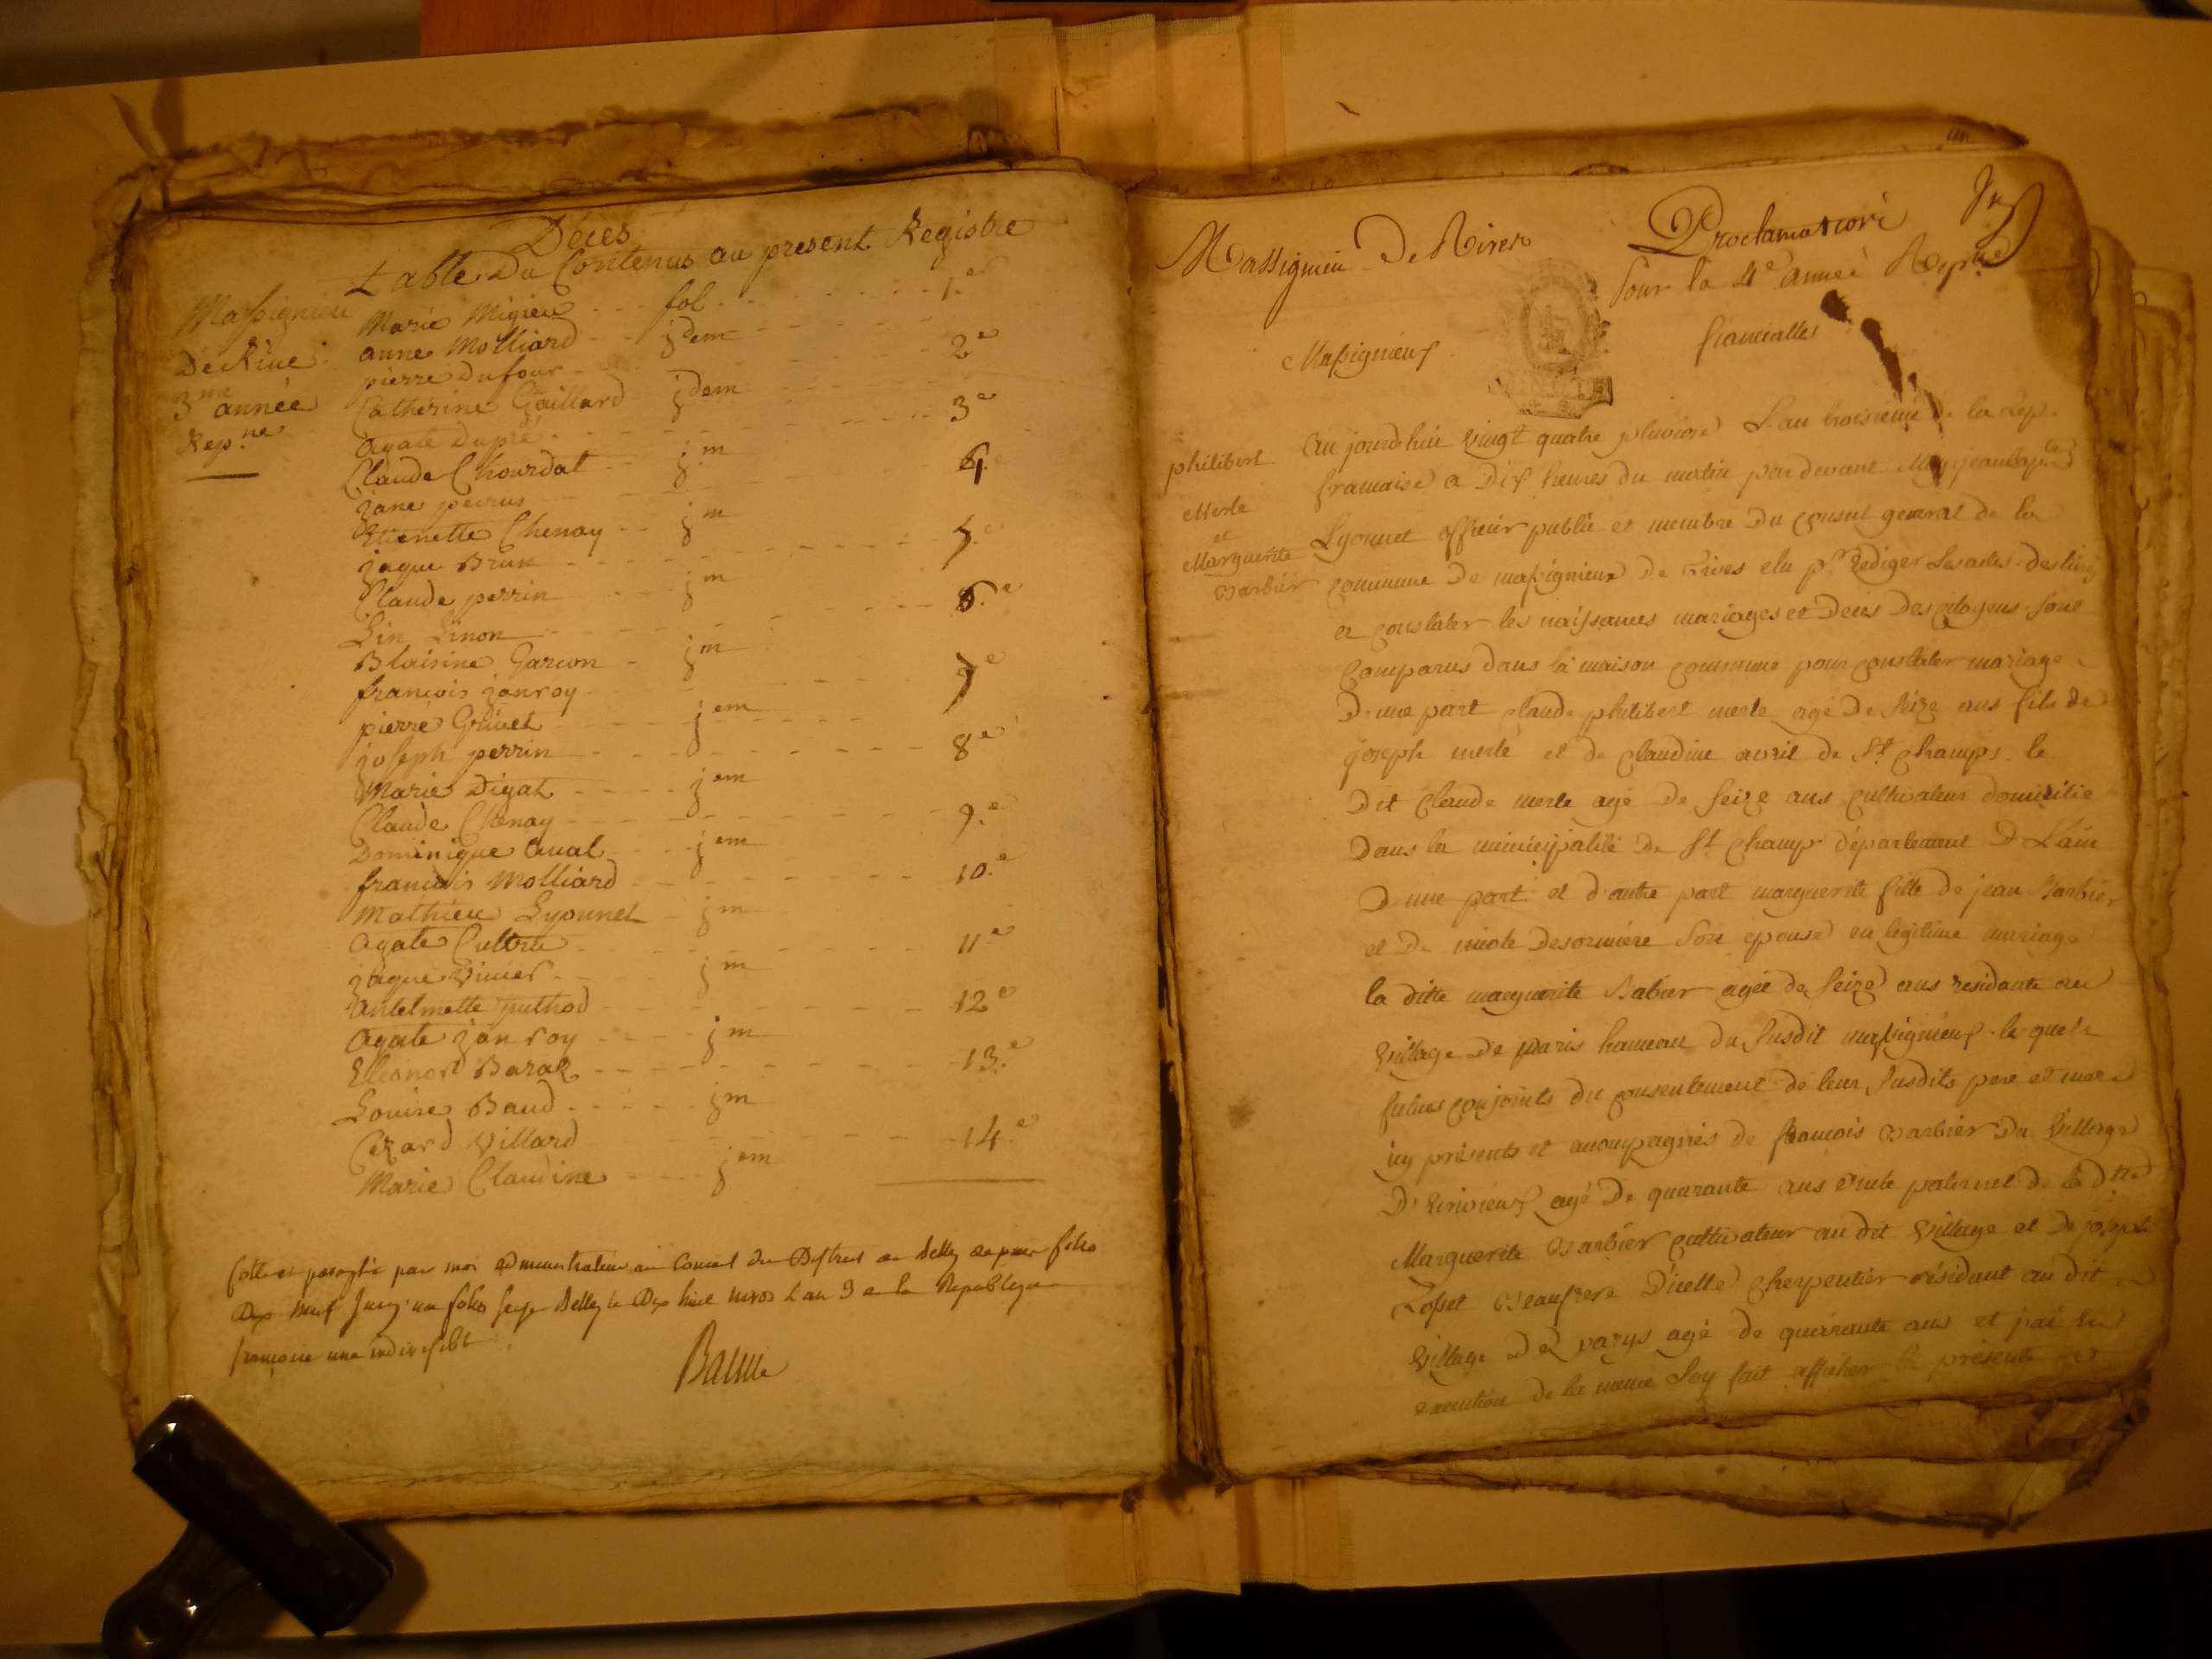 Décés
Table Du Contenus au present Registre
Massignieu
De Rive
3me année
Repne
Marie Migieu - - - fol - - - 1.er
anne Molliard - - jdem
pierre Dufour - - - 2e
Catherine Gaillard - jdem
agate Dupré - - - 3e
Claude Chourdat - - j.m
jane perrus - - - 4
Etienette Chenay - - jm
jaque Brun - - - 5.e
Claude perrin - - - jm
Lin Linon - - - 6.e
Blaisine Garcon - jm
francois janroy - - - 7e
pierre Grivet - - - jem
joseph perrin - - - 8e
Marie Digat - - - jem
Claude Chenay - - - 9.e
Dominique Aual - - - jem
francois Molliard - - - 10.e
Mathieu Lyonnet - jm
agate Cultrte - - - 11e
jaque Vinier - - - jm
antelmette puthod - - - 12e
agate jan roy - - - jm
Eleonord Baral - - - 13.e
Louise Baud - - - jm
Cezard Villard - - - 14.e
Marie Claudine - - - jem
Cotté et paraphé par moi administrateur au Conseil du District de Belley
Dix neuf folio Belley le Dix huit nivos L'an 3 de la Republique
francoise une indivisible
Baume
Massignieu De Rives
Proclamation
Pour la 4e année Repne
Massignieux
francialles
philibert
Merle
et
Marguerite
Barbier
Au jourdhui vingt quatre pluviose L'an troisieme de la Rep.
francaise a Dix heures du matin par devant Moy jean bapte
Lyonnet officier public et membre Du conseil general de la
commune De massignieux De Rives elu pr. Rediger les actes
et constater les naissances mariages et Décès Des citoyens sont
comparus dans la maison commune pour constater mariage
D'une part claude philibert merle agé De seize ans fils de
joseph merle et de claudine avril de St. Champs. le
Dit Claude merle agé De seize ans cultivateur domicilié
Dans la municipalité De St Champ département D L'ain
D'une part et d'autre part marguerite fille de jean Barbier
et De nicole Desormiere son epouse en légitime mariage
la ditte marguerite Babier agée De seize ans residante au
village De paris hameau du susdit massignieux lesquels
futurs conjoints du consentement de leur susdits pere et mere
icy présents et accompagnés de francois Barbier Du village
D' agé De quarante ans oncle paternel de la dtte
Marguerite Barbier cultivateur au dit Village et De joseph
Rosset Beaufrere D'icelle cherpentier résidant au dit
village de parys agé de quarante ans et j'ai en
execution de la meme Loy fait afficher la présente